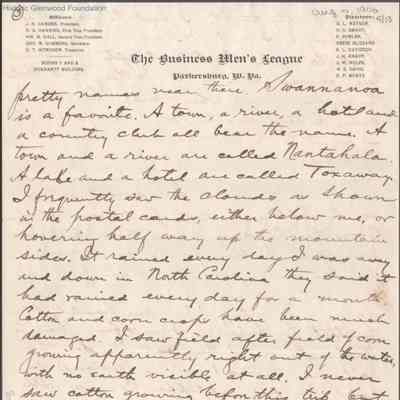 Historic Glenwood Foundation
Officers:
President,
First Vice President
Second Vice President
Secretary
Treasurer
Rooms 7 and 8
Directors:
The Business Men's League
Parkersburg, W. Va.
pretty names near there Swannanoa
is a favorite. A town, a river, a hotel and
a country club all bear the name. A
town and a river are called Nantahala.
A lake and a hotel are called Toxaway.
I frequently saw the clouds as shown
in the postal cards, either below me, or
hovering half way up the mountain
sides. It rained every day I was away
and down in North Carolina they said it
had rained every day for a month
Cotton and corn crops have been much
damaged. I saw field after field of corn
growing apparently right out of the water,
with no earth visible at all. I never
saw cotton growing before this trip but